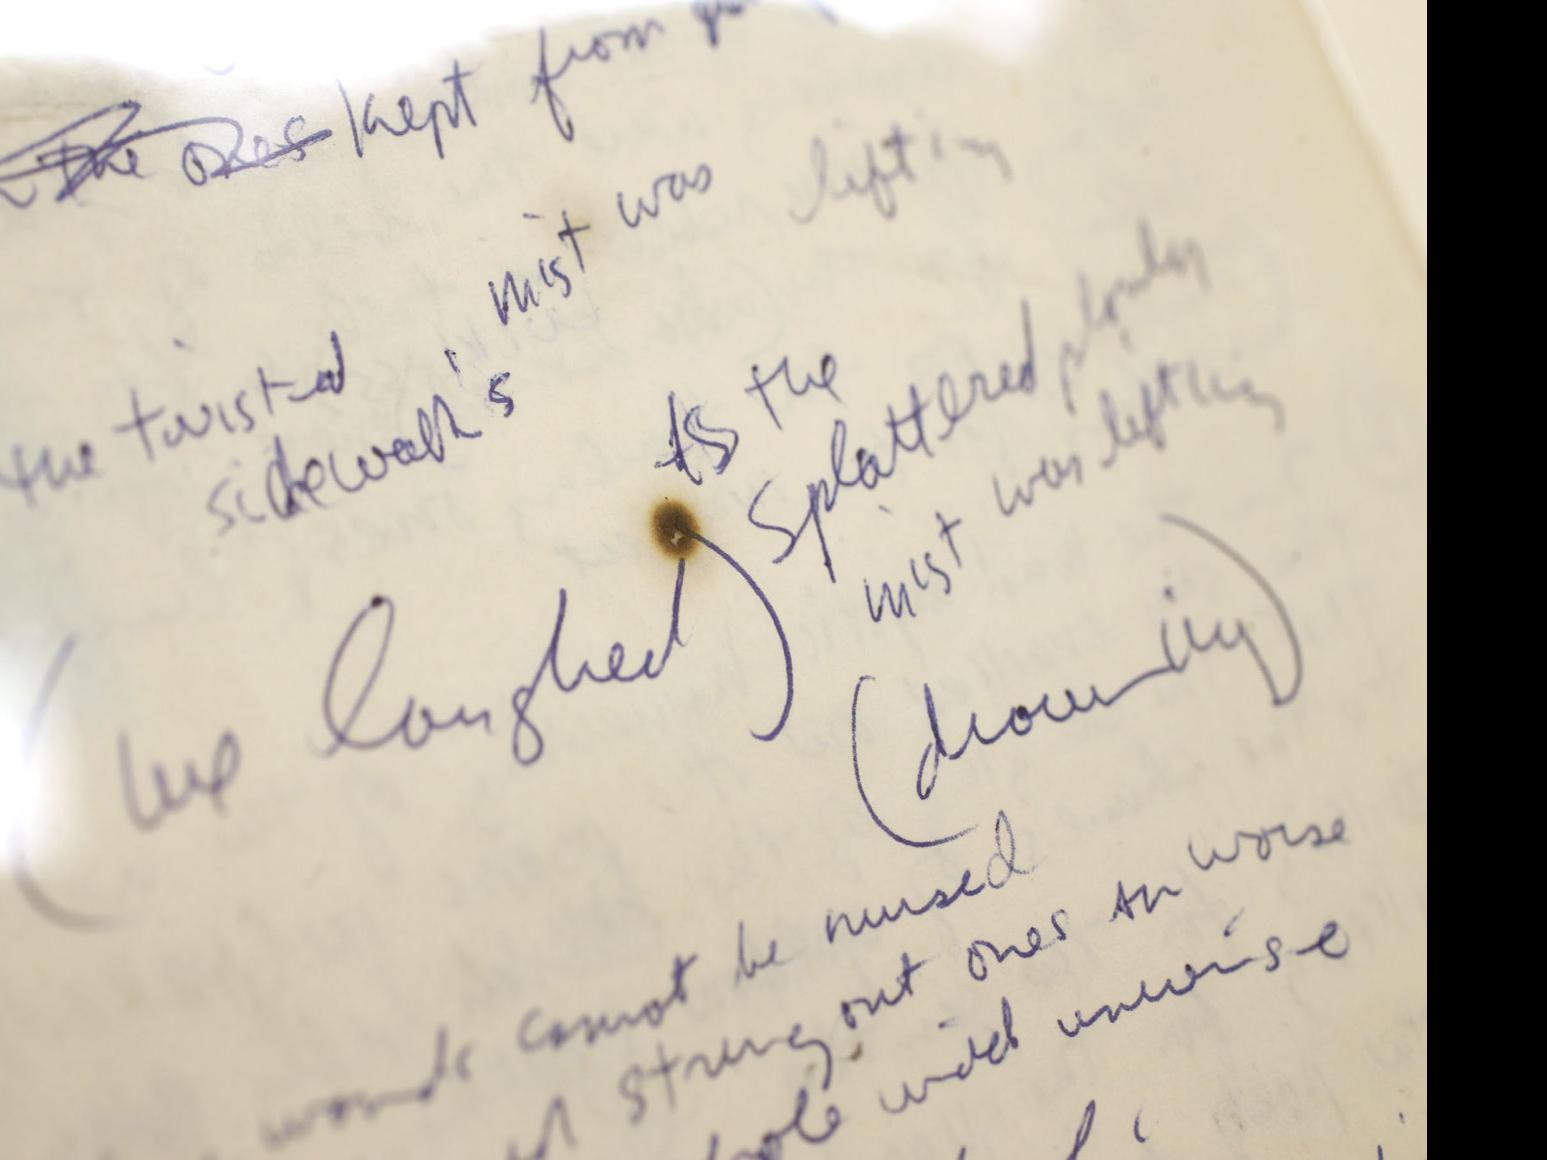 the ones kept from
mist was lifting
the twisted
sidewalk's
As the
splattered
mist was lifting
(we laughed)
(drowning)
wounds cannot be nursed
strung out ones an worse
whole wide unwise